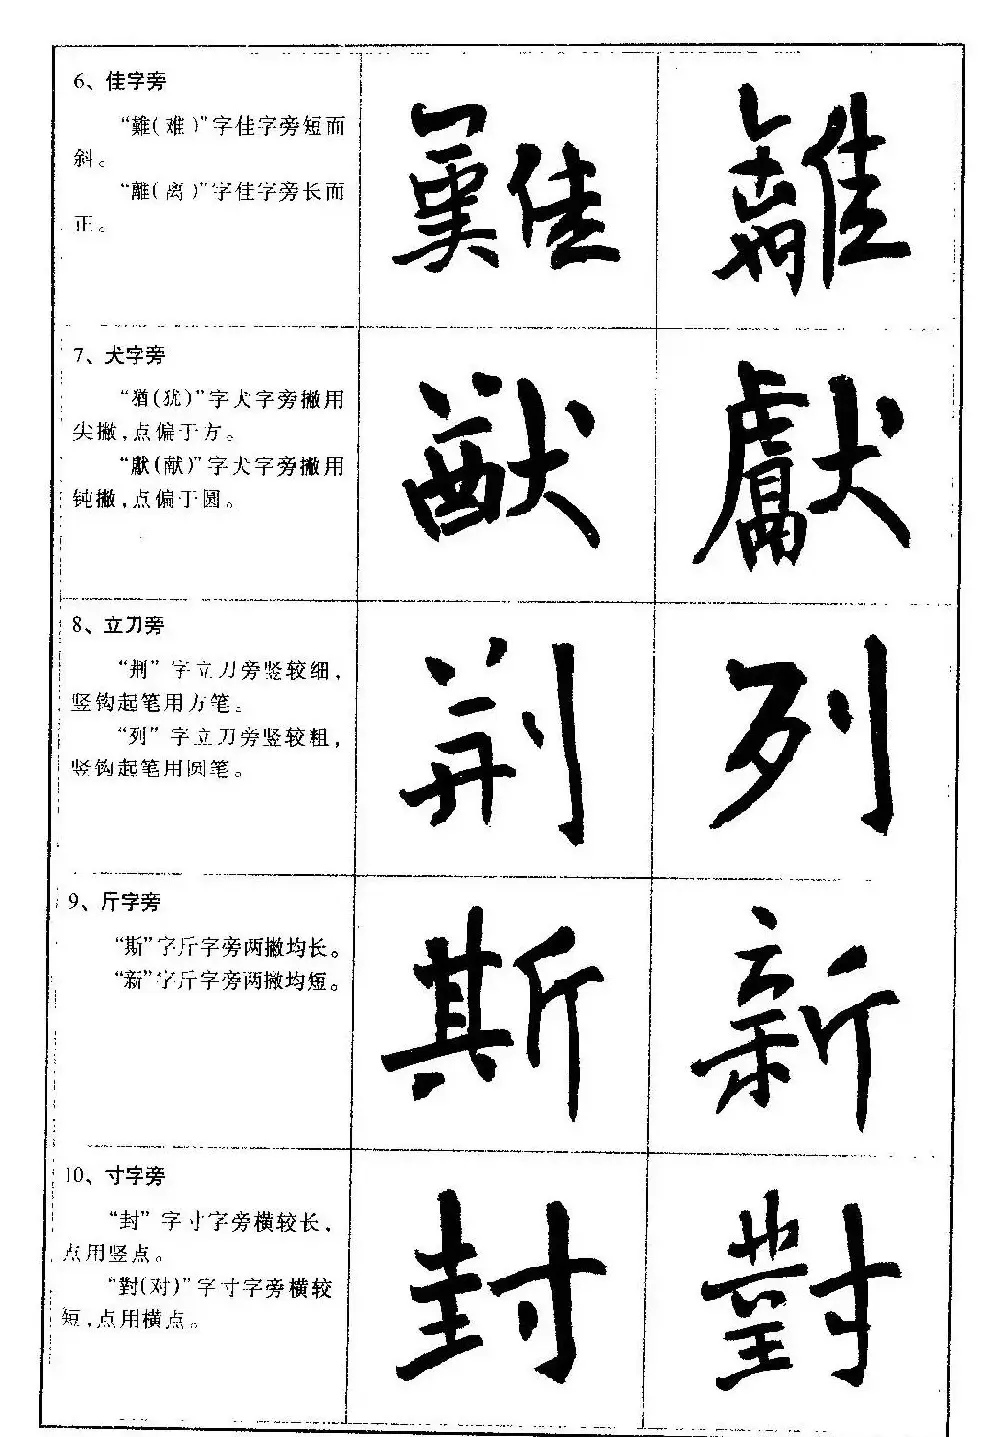 6、佳字旁
“難(难)”字佳字旁短而
斜。
“離(离)”字佳字旁长而
正。
難
離
7、犬字旁
“猶(犹)”字犬字旁撇用
尖撇,点偏于方。
“獻(献)”字犬字旁撇用
钝撇,点偏于圆。
猷
獻
8、立刀旁
“荆”字立刀旁竖较细,
竖钩起笔用方笔。
“列”字立刀旁竖较粗,
竖钩起笔用圆笔。
荆
列
9、斤字旁
“斯”字斤字旁两撇均长。
“新”字斤字旁两撇均短。
斯
新
10、寸字旁
“封”字寸字旁横较长,
点用竖点。
“對(对)”字寸字旁横较
短,点用横点。
封
對